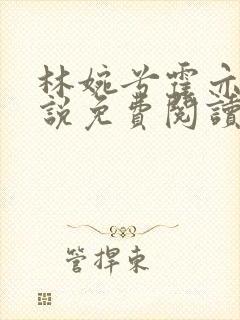 林婉兮霍亦
說免費閱讀
管捍東